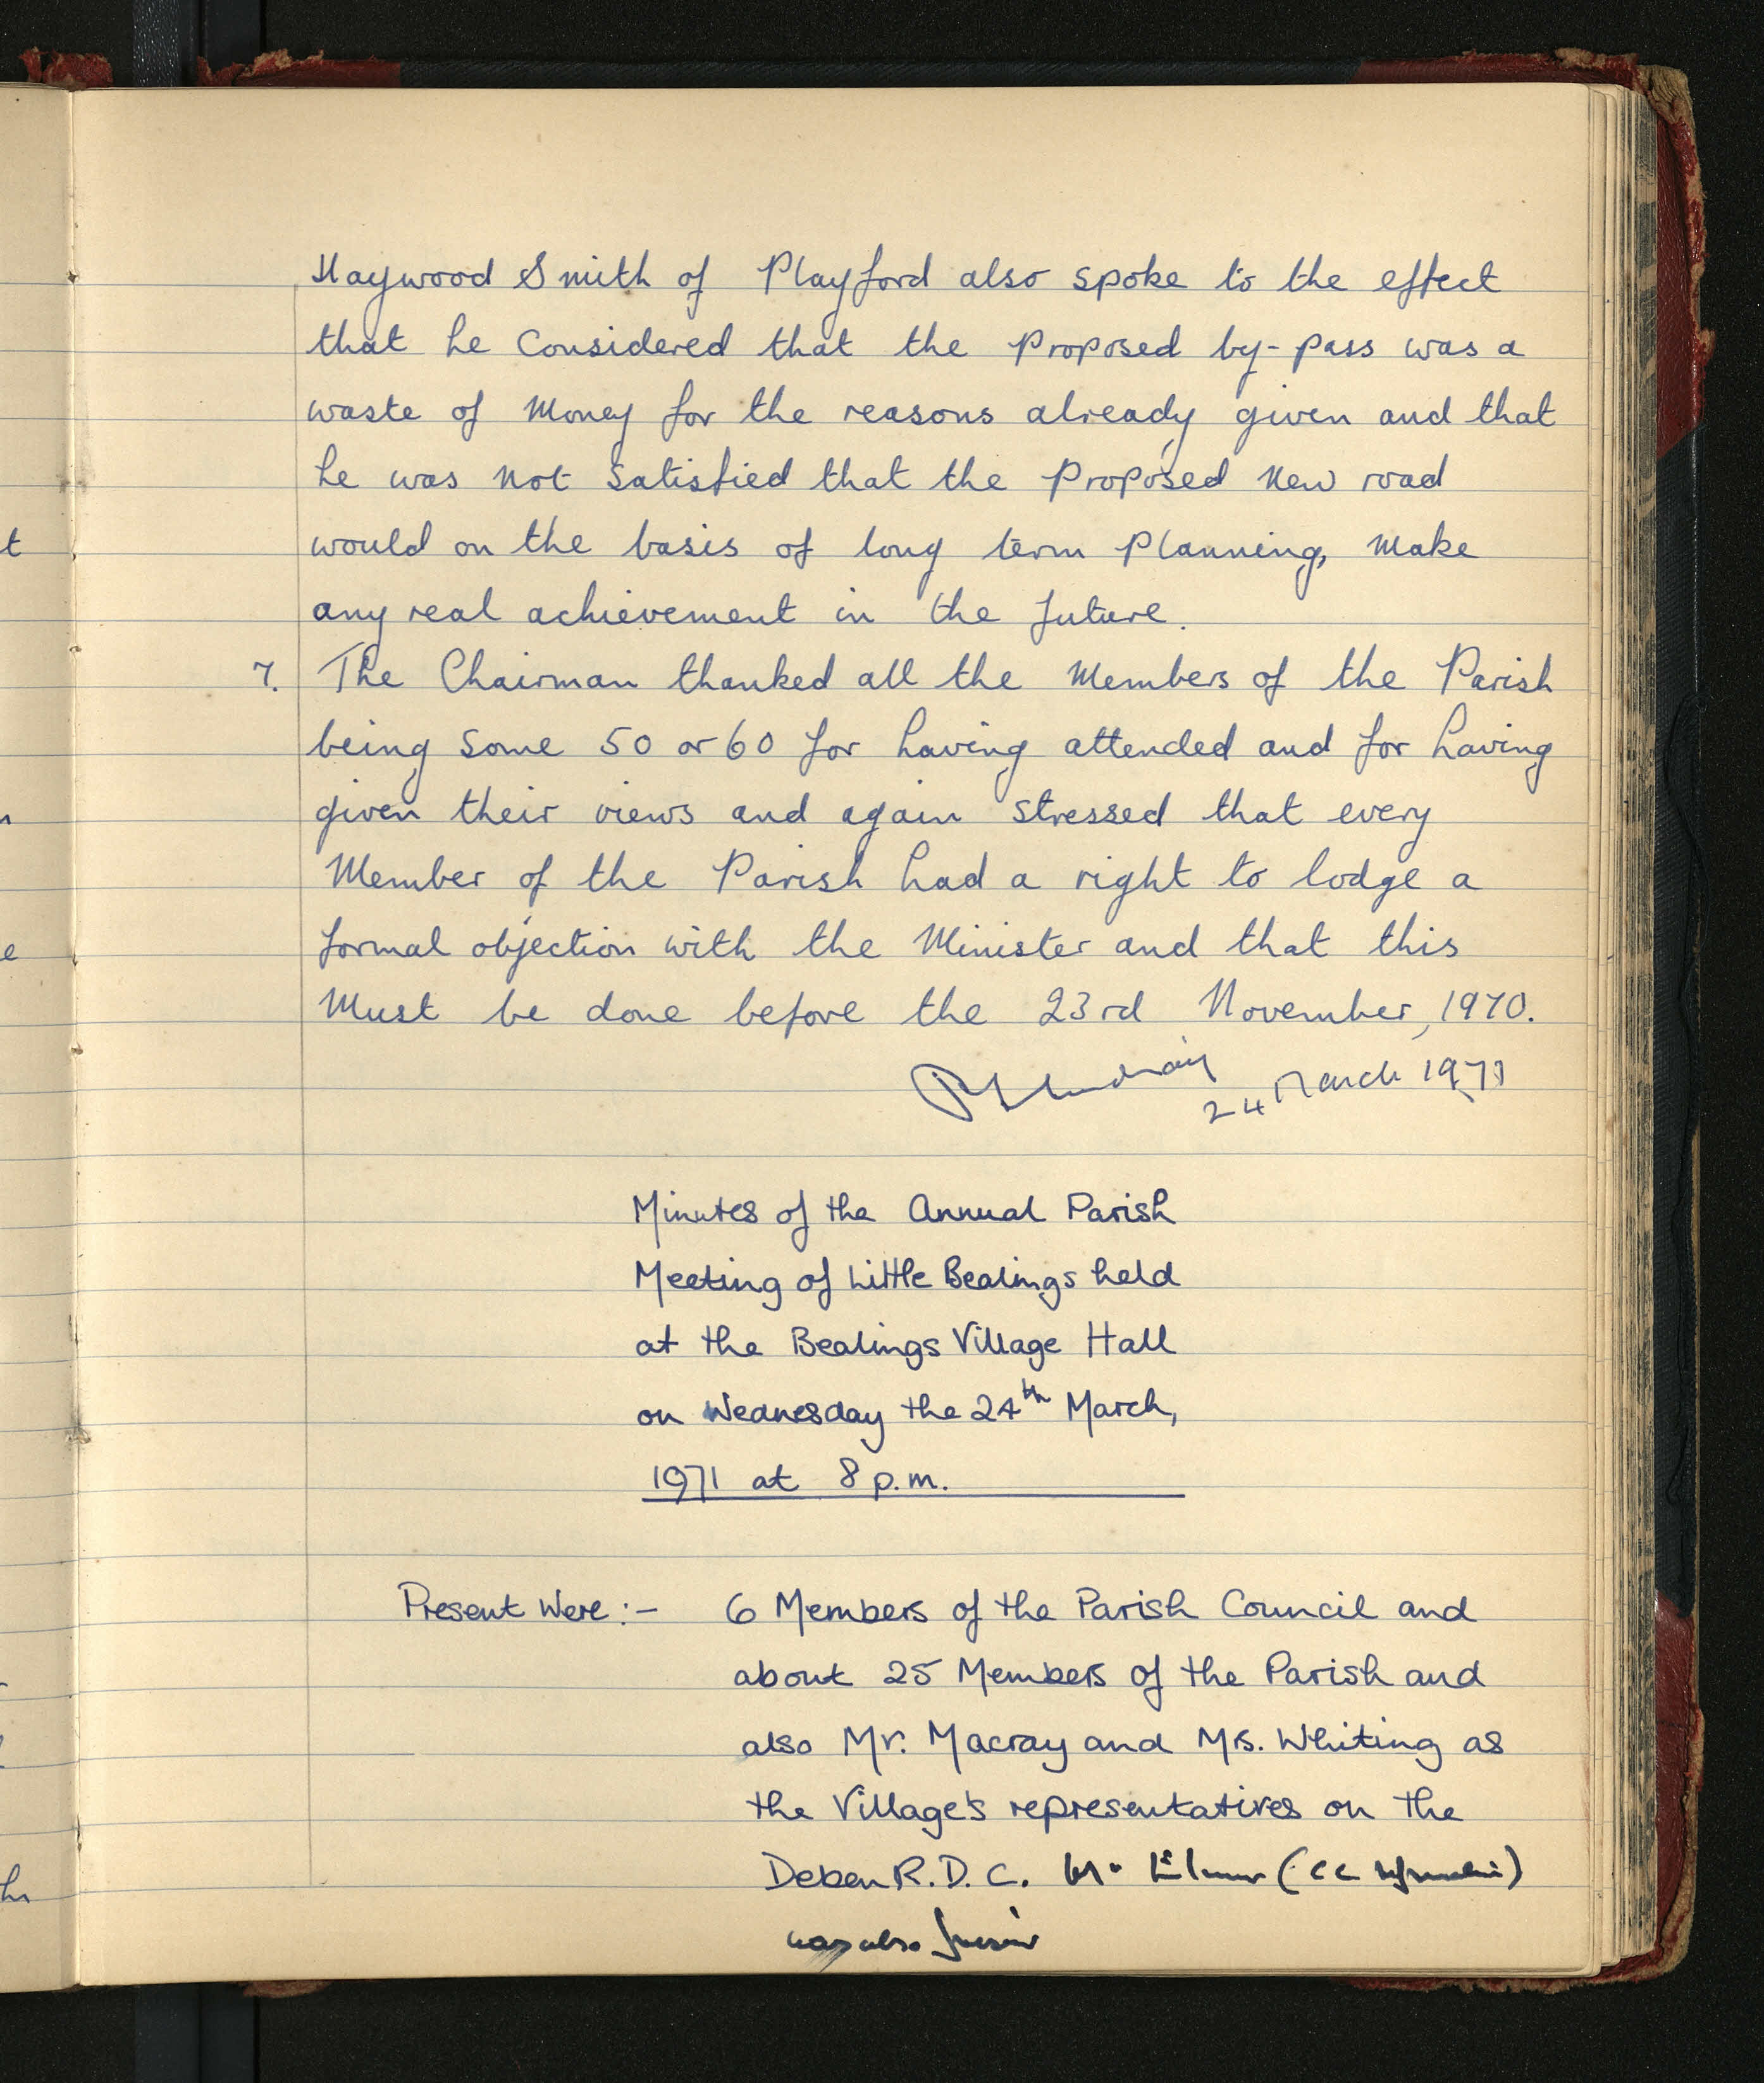 Haywood Smith of Playford also spoke to the effect
that he Considered that the Proposed by-pass was a
waste of Money for the reasons already given and that
he was Not Satisfied that the Proposed New road
would on the basis of long term Planning, Make
any real achievement in the future.
7. The Chairman thanked all the Members of the Parish
being Some 50 or 60 for having attended and for having
given their views and again stressed that every
Member of the Parish had a right to lodge a
formal objection with the Minister and that this
Must be done before the 23rd November, 1970.
24 March 1971
Minutes of the Annual Parish
Meeting of Little Bealings held
at the Bealings Village Hall
on Wednesday the 24th March,
1971 at 8 p.m.
Present Were :- 6 Members of the Parish Council and
about 25 Members of the Parish and
also Mr. Macray and Mrs. Whiting as
the Village's representatives on the
Deben R.D.C. Mr (CC
was also present